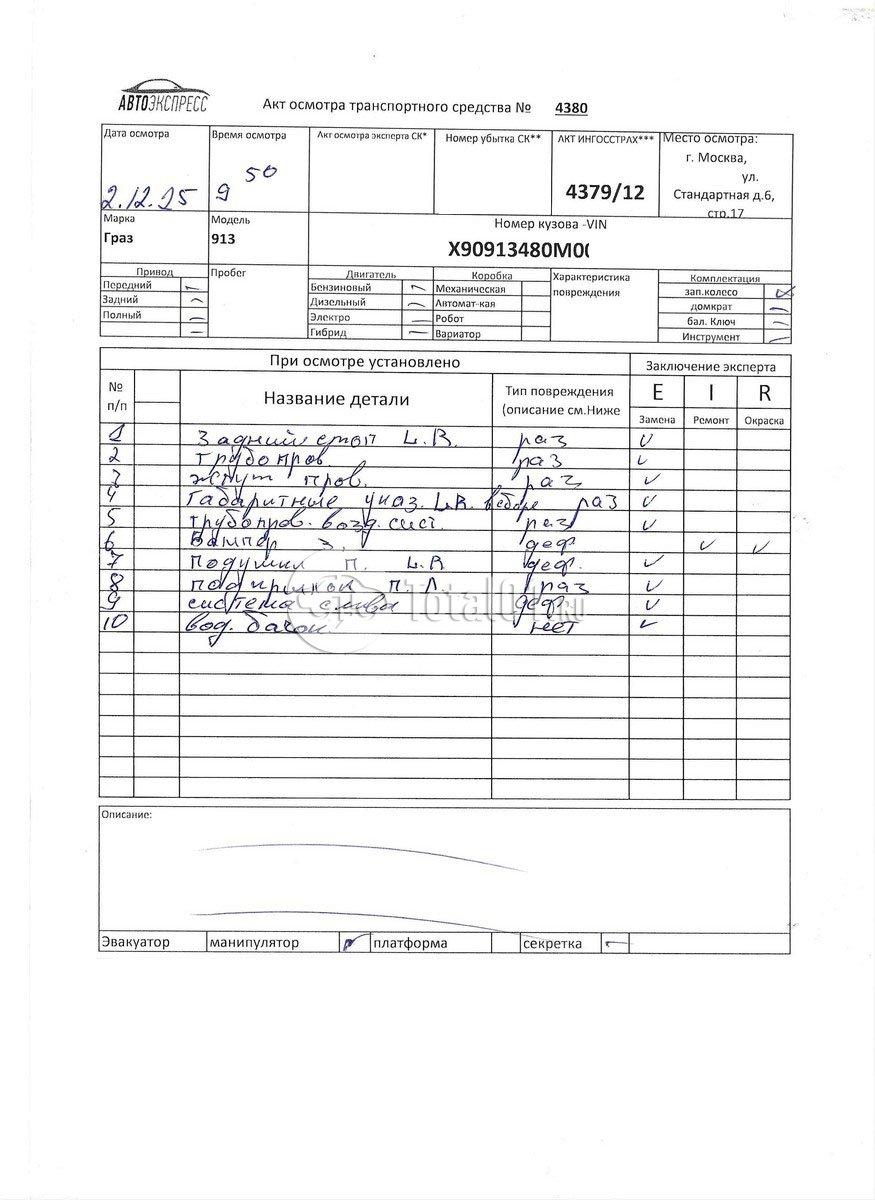 АВТОЭКСПРЕСС
Акт осмотра транспортного средства № 4380
Дата осмотра
Время осмотра
Акт осмотра эксперта СК*
Номер убытка СК**
АКТ ИНГОССТРАХ***
Место осмотра:
г. Москва,
ул.
Стандартная д.6,
стр.17
2.12.25
9 50
4379/12
Марка
Граз
Модель
913
Номер кузова -VIN
X90913480M0
Привод
Передний
Задний
Полный
Пробег
Двигатель
Бензиновый
Дизельный
Электро
Гибрид
Коробка
Механическая
Автомат-кая
Робот
Вариатор
Характеристика
повреждения
Комплектация
зап.колесо
домкрат
бал. Ключ
Инструмент
При осмотре установлено
Заключение эксперта
№
п/п
Название детали
Тип повреждения
(описание см.Ниже
E I R
Замена Ремонт Окраска
1 Задний стоп L.R. раз
2 трубопров. раз
3 жгут пров. раз
4 Габаритные указ. L.R. в сборе раз
5 трубопров. возд. сист. раз
6 Бампер з. деф
7 Подушки п. L.R деф.
8 подкрылок п Л раз
9 система слива деф
10 вод. бачок нет
Total01.RU
Описание:
Эвакуатор манипулятор платформа секретка